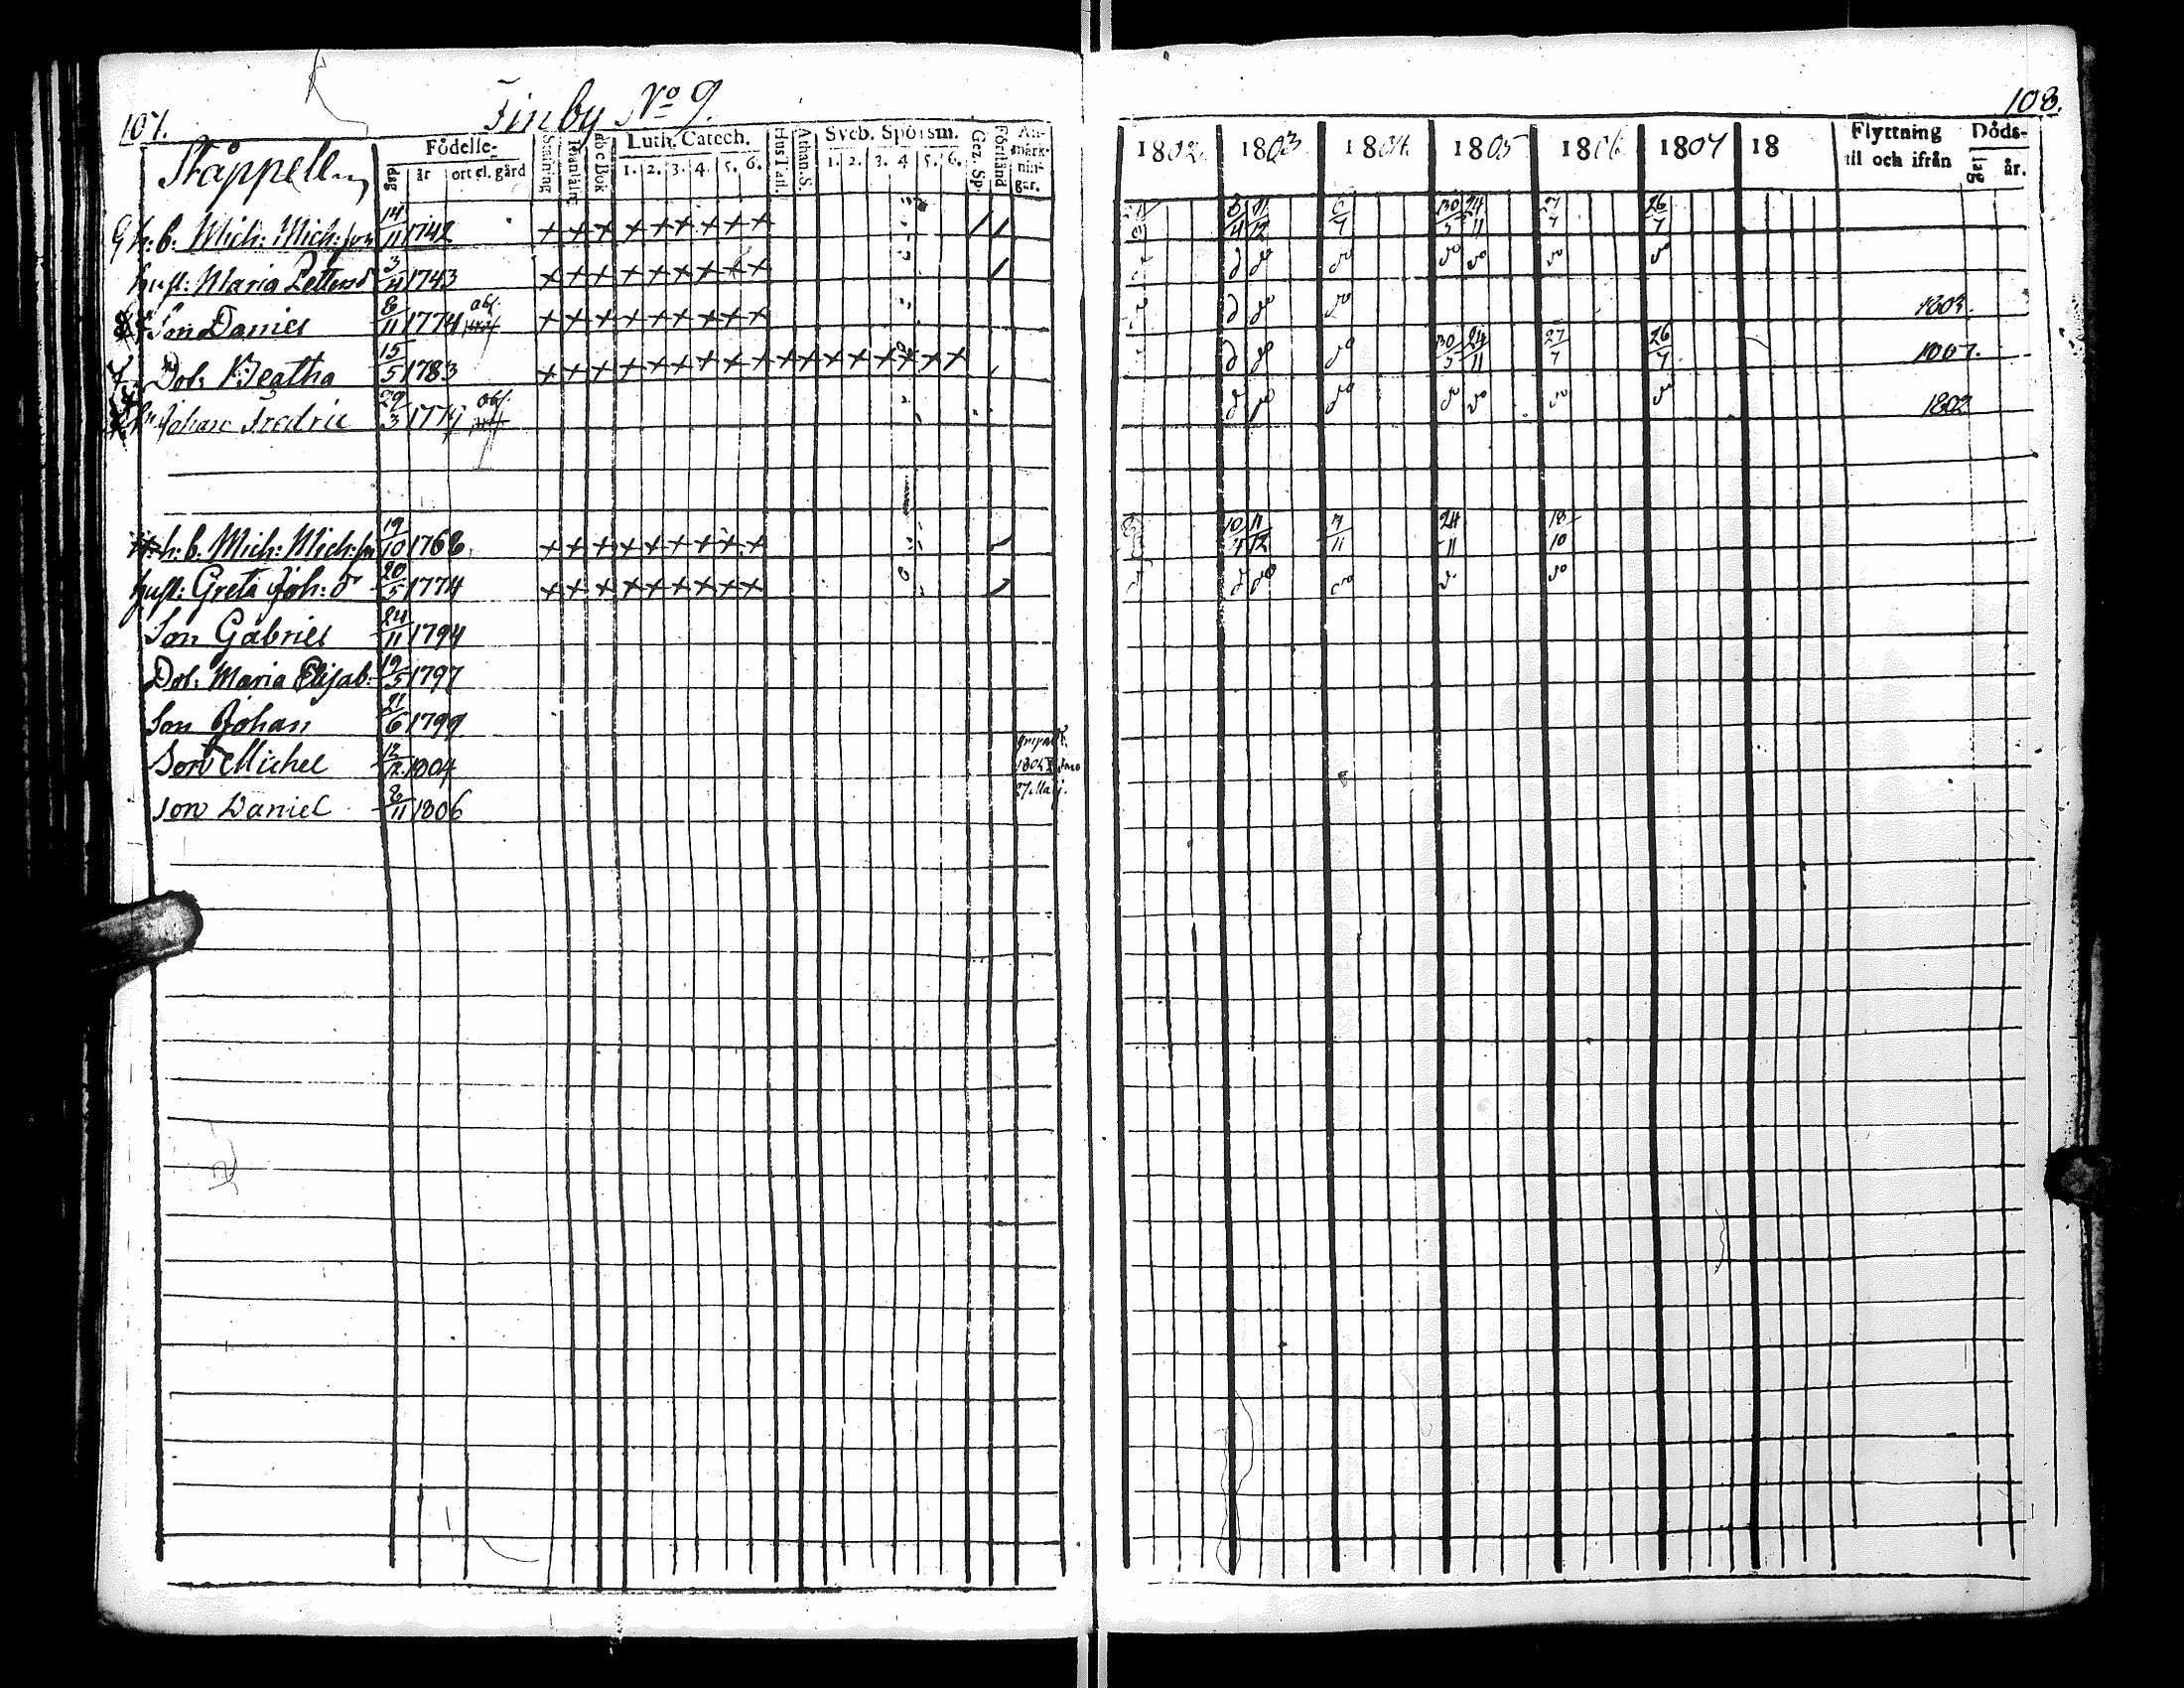 107.
Finby No 9.
Ståppelby
Födelse-
dag
år
ort el. gård
Luth. Catech.
1. 2. 3. 4. 5. 6.
Athan. S.
Sveb. Spörsm.
1. 2. 3. 4 5. 6.
Gez. Sp.
Förstånd
An-
märk-
nin-
gar.
h: b: Mich: Mich:son 14/11 1742 + + + + + + + + +
hust: Maria Petters d 3/4 1743 + + + + + + + + +
Son Daniel 8/11 1774 abs. + + + + + + + + +
Dot: Beatha 15/5 1783 + + + + + + + + + + + + + + + + +
Johan Fredric 29/3 1779 abs.
h: b: Mich: Mich:son 19/10 1768 + + + + + + + + +
hust: Greta Joh: d 20/5 1774 + + + + + + + + +
Son Gabriel 24/11 1794
Dot: Maria Elisab. 19/5 1797
Son Johan 21/6 1799
Son Michel 12/12 1804
Son Daniel 8/11 1806
108.
1802. 1803 1804. 1805 1806 1807 18
Flyttning
til och ifrån
Döds-
dag år.
8/4 11/12 6/7 30/5 24/11 27/7 26/7
d do do do do do do
d do do 1803.
d do do 30/5 24/11 27/7 26/7 1807.
d do do do do do do 1802
10/4 11/12 4/11 24/11 18/10
d do do do do